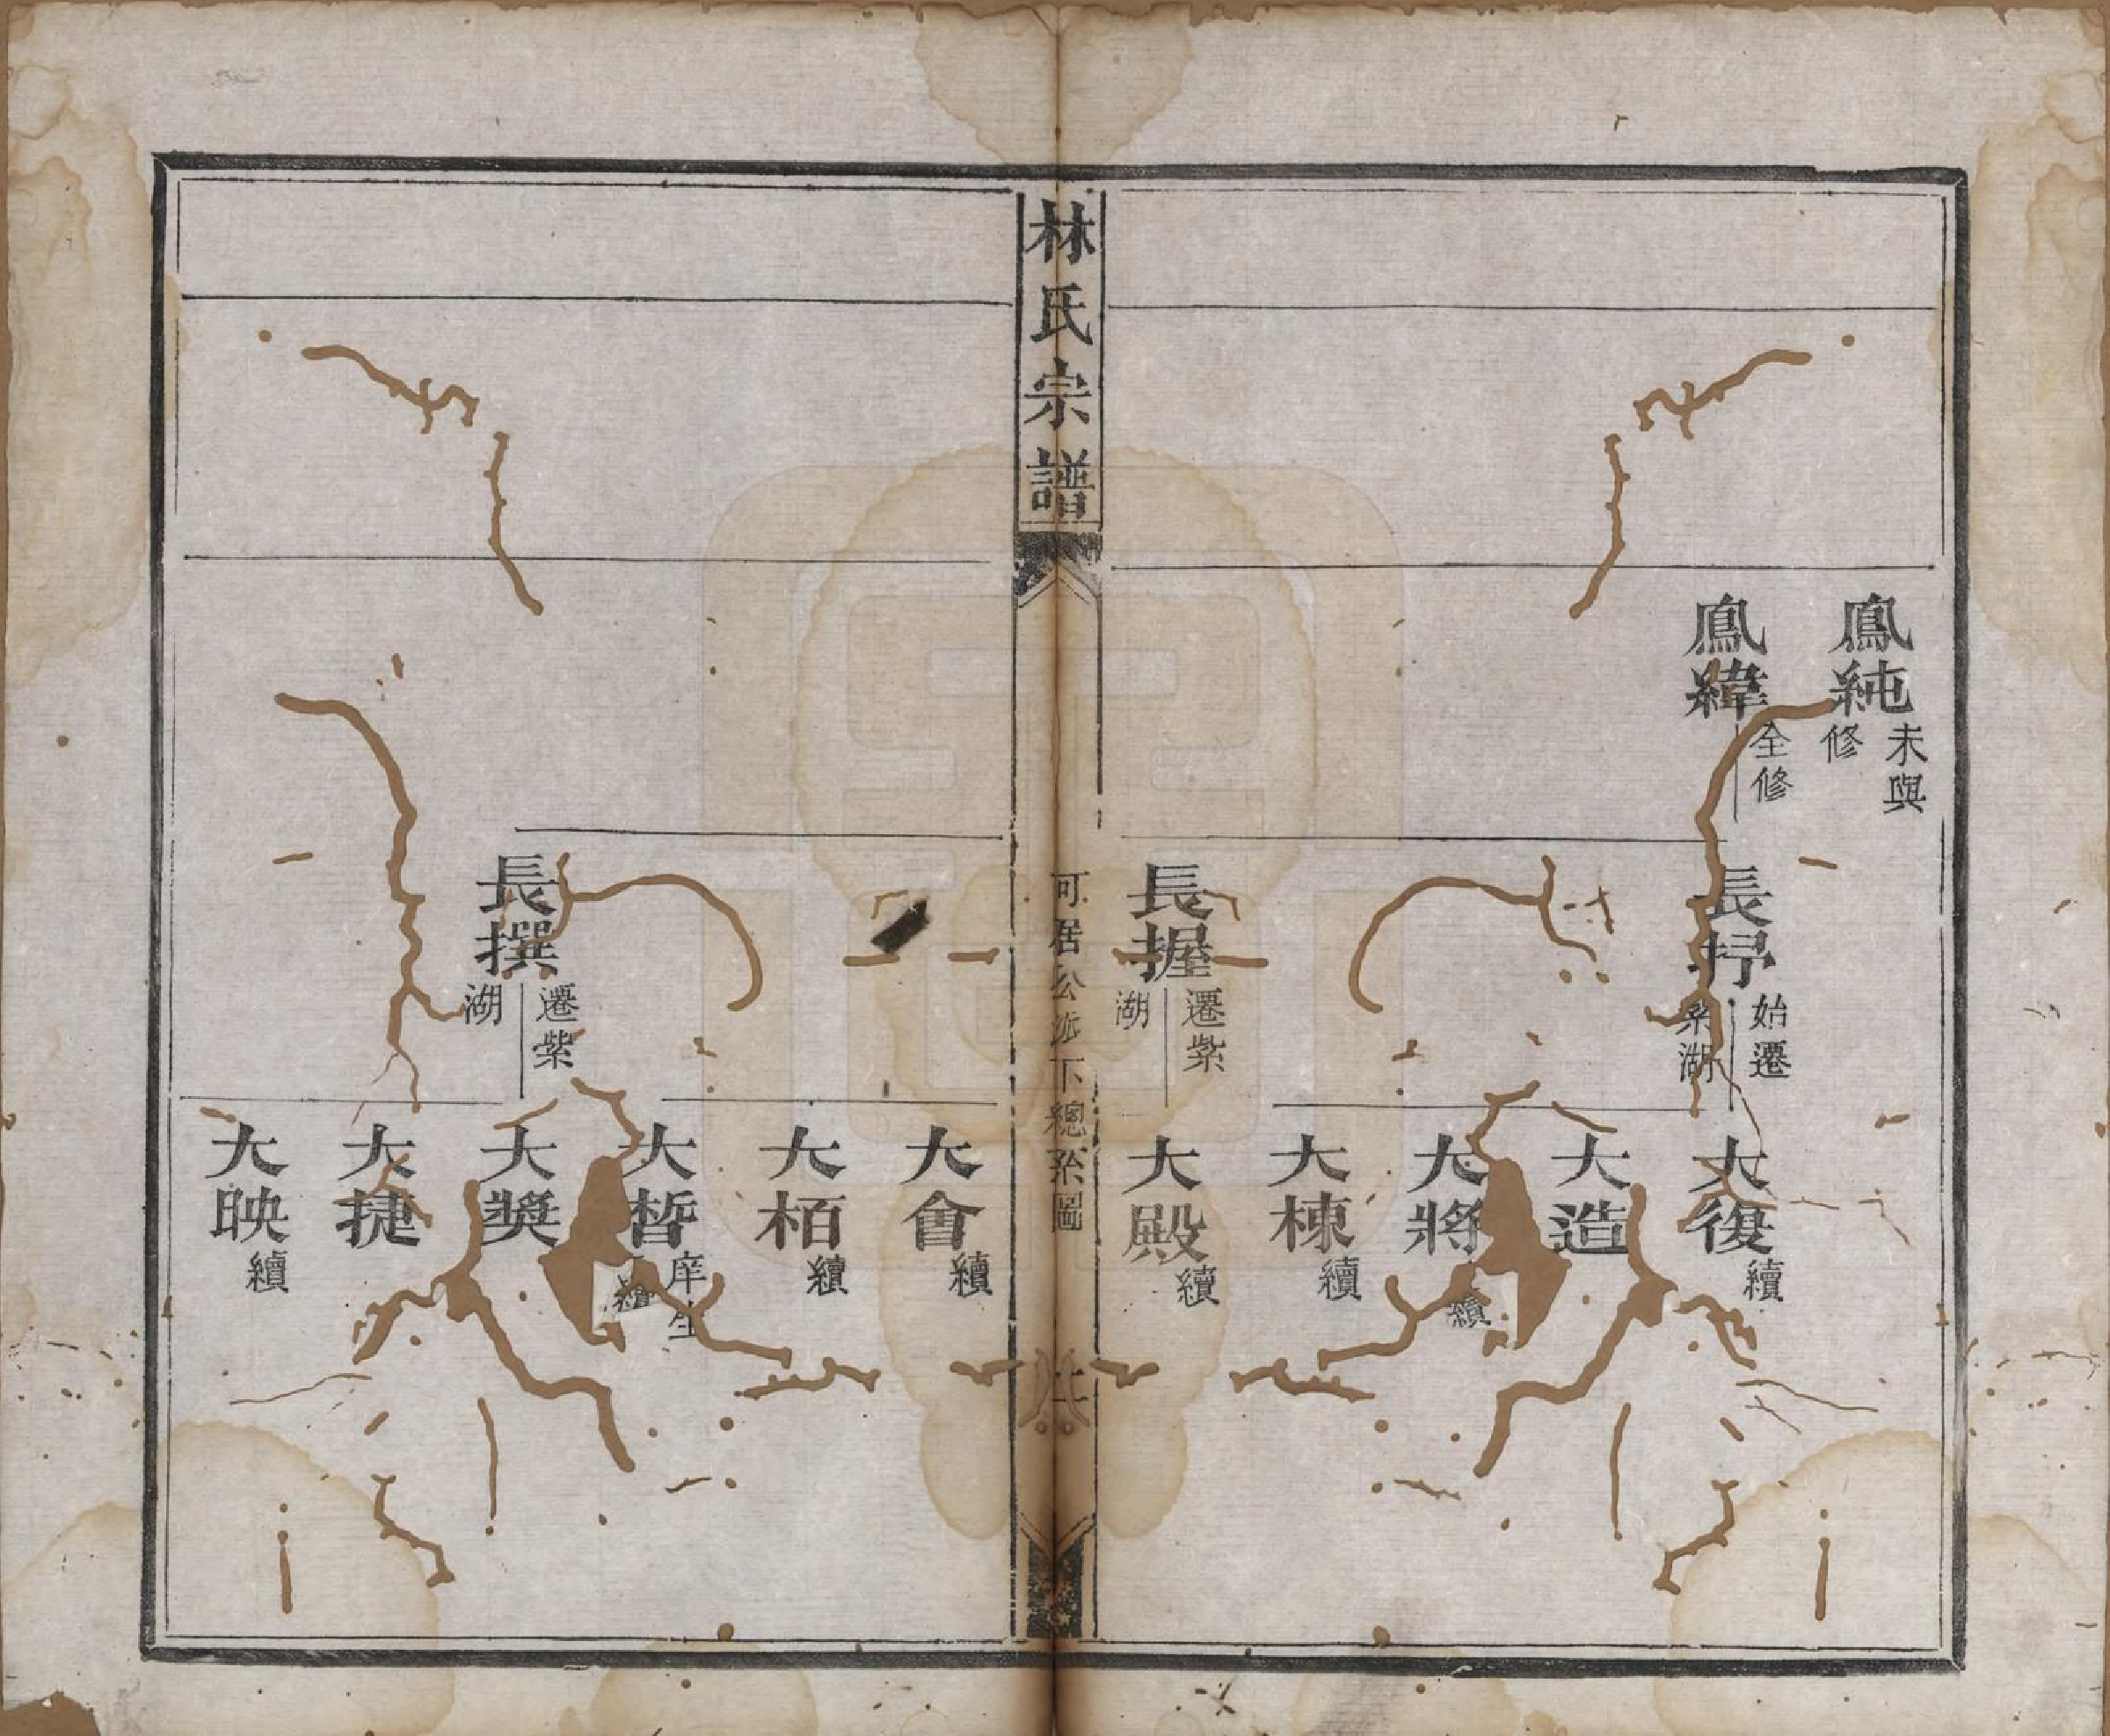 鳳純
未與
修
鳳緯
仝修
長抒
始遷
紫湖
大復
續
大造
大將
續
大棟
續
長握
遷紫
湖
大殿
續
林氏宗譜
可居公派下總系圖
大會
續
大栢
續
大晳
庠生
續
長撰
遷紫
湖
大獎
大捷
大映
續